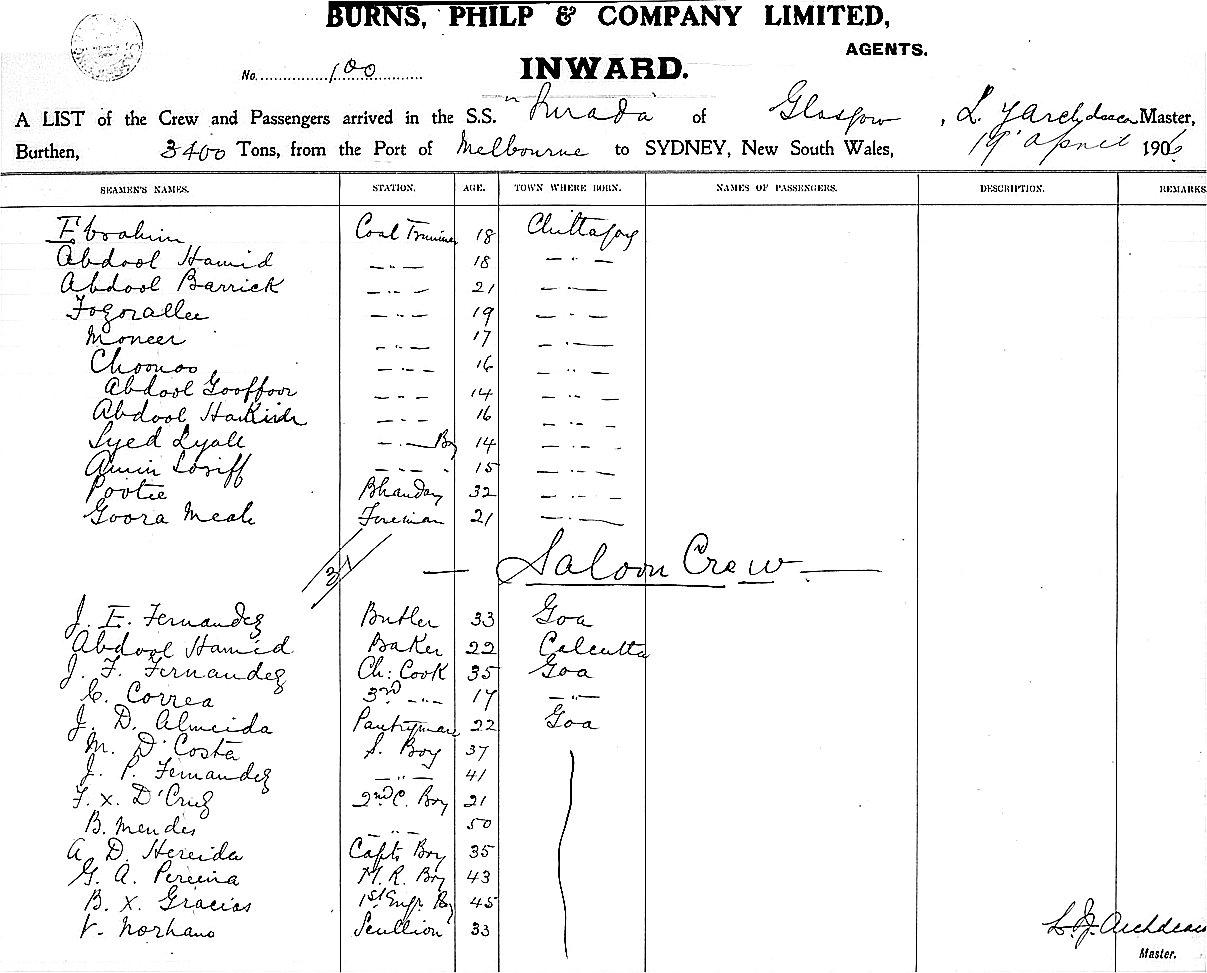 BURNS, PHILP & COMPANY LIMITED,
AGENTS.
No. 100
INWARD.
A LIST of the Crew and Passengers arrived in the S.S. of Glasgow, L. J Archdeacon Master,
Burthen, 3400 Tons, from the Port of Melbourne to SYDNEY, New South Wales, 19' April 1906
SEAMEN'S NAMES. STATION. AGE. TOWN WHERE BORN. NAMES OF PASSENGERS. DESCRIPTION. REMARKS
Ebrahim Coal Trimmer 18 Chittagong
Abdool Hamid —"— 18 —"—
Abdool Barrick —"— 21 —"—
Fozorallee —"— 19 —"—
Moneer —"— 17 —"—
Choonoo —"— 16 —"—
Abdool Gooffoor —"— 14 —"—
Abdool —"— 16 —"—
Syed Lyall —"— Boy 14 —"—
Amin —"— " 15 —"—
Pootie Bhandary 32 —"—
Goora Meah Fireman 21 —"—
37 — Saloon Crew —
J. E. Fernandez Butler 33 Goa
Abdool Hamid Baker 22 Calcutta
J. F. Fernandez Ch: Cook 35 Goa
C. Correa 3rd —"— 17 —"—
J. D. Almeida Pantryman 22 Goa
M. D'Costa S. Boy 37
J. P. Fernandez —"— 41
F. X. D'Cruz 2nd C. Boy 21
B. Mendes —"— 50
A. D. Hereida Capts Boy 35
G. A. Pereira M. R. Boy 43
B. X. Gracias 1st Engr. Boy 45
V. Norhano Scullion 33
L. J. Archdeacon
Master.